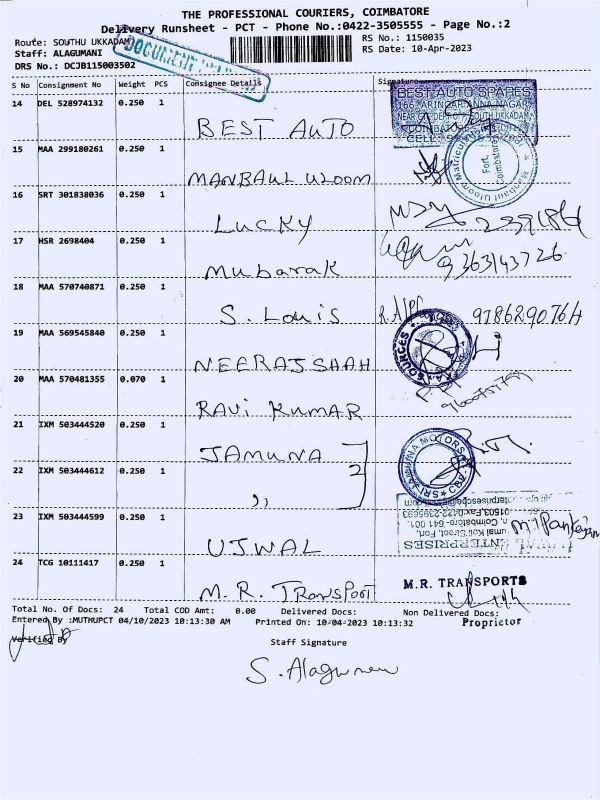 THE PROFESSIONAL COURIERS, COIMBATORE
Delivery Runsheet - PCT - Phone No.:0422-3505555 - Page No.:2
Route: SOUTHU UKKADAM
RS No.: 1150035
Staff: ALAGUMANI
RS Date: 10-Apr-2023
DRS No.: DCJB115003502
DOCUMENT
S No Consignment No Weight PCS Consignee Details Signature
14 DEL 528974132 0.250 1 BEST AUTO
BEST AUTO SPARES
166, ARINGAR ANNA NAGAR
15 MAA 299180261 0.250 1 MANBAUL ULOOM
Manbaul Uloom Matriculation
Fort, Coimbatore
16 SRT 301838036 0.250 1 LUCKY
17 HSR 2698404 0.250 1 Mubarak
9363143726
18 MAA 570740871 0.250 1 S. Louis
9786290764
19 MAA 569545840 0.250 1 NEERAJ SHAH
20 MAA 570481355 0.070 1 RAVI KUMAR
21 IXM 503444520 0.250 1 JAMUNA
SRI JAMUNA MOTORS
22 IXM 503444612 0.250 1 ,, 2
23 IXM 503444599 0.250 1 UJWAL
ENTERPRISES
24 TCG 10111417 0.250 1 M.R. TRANSPORT
M.R. TRANSPORTS
Proprietor
Total No. Of Docs: 24 Total COD Amt: 0.00 Delivered Docs: Non Delivered Docs:
Entered By :MUTHUPCT 04/10/2023 10:13:30 AM Printed On: 10-04-2023 10:13:32
Verified By
Staff Signature